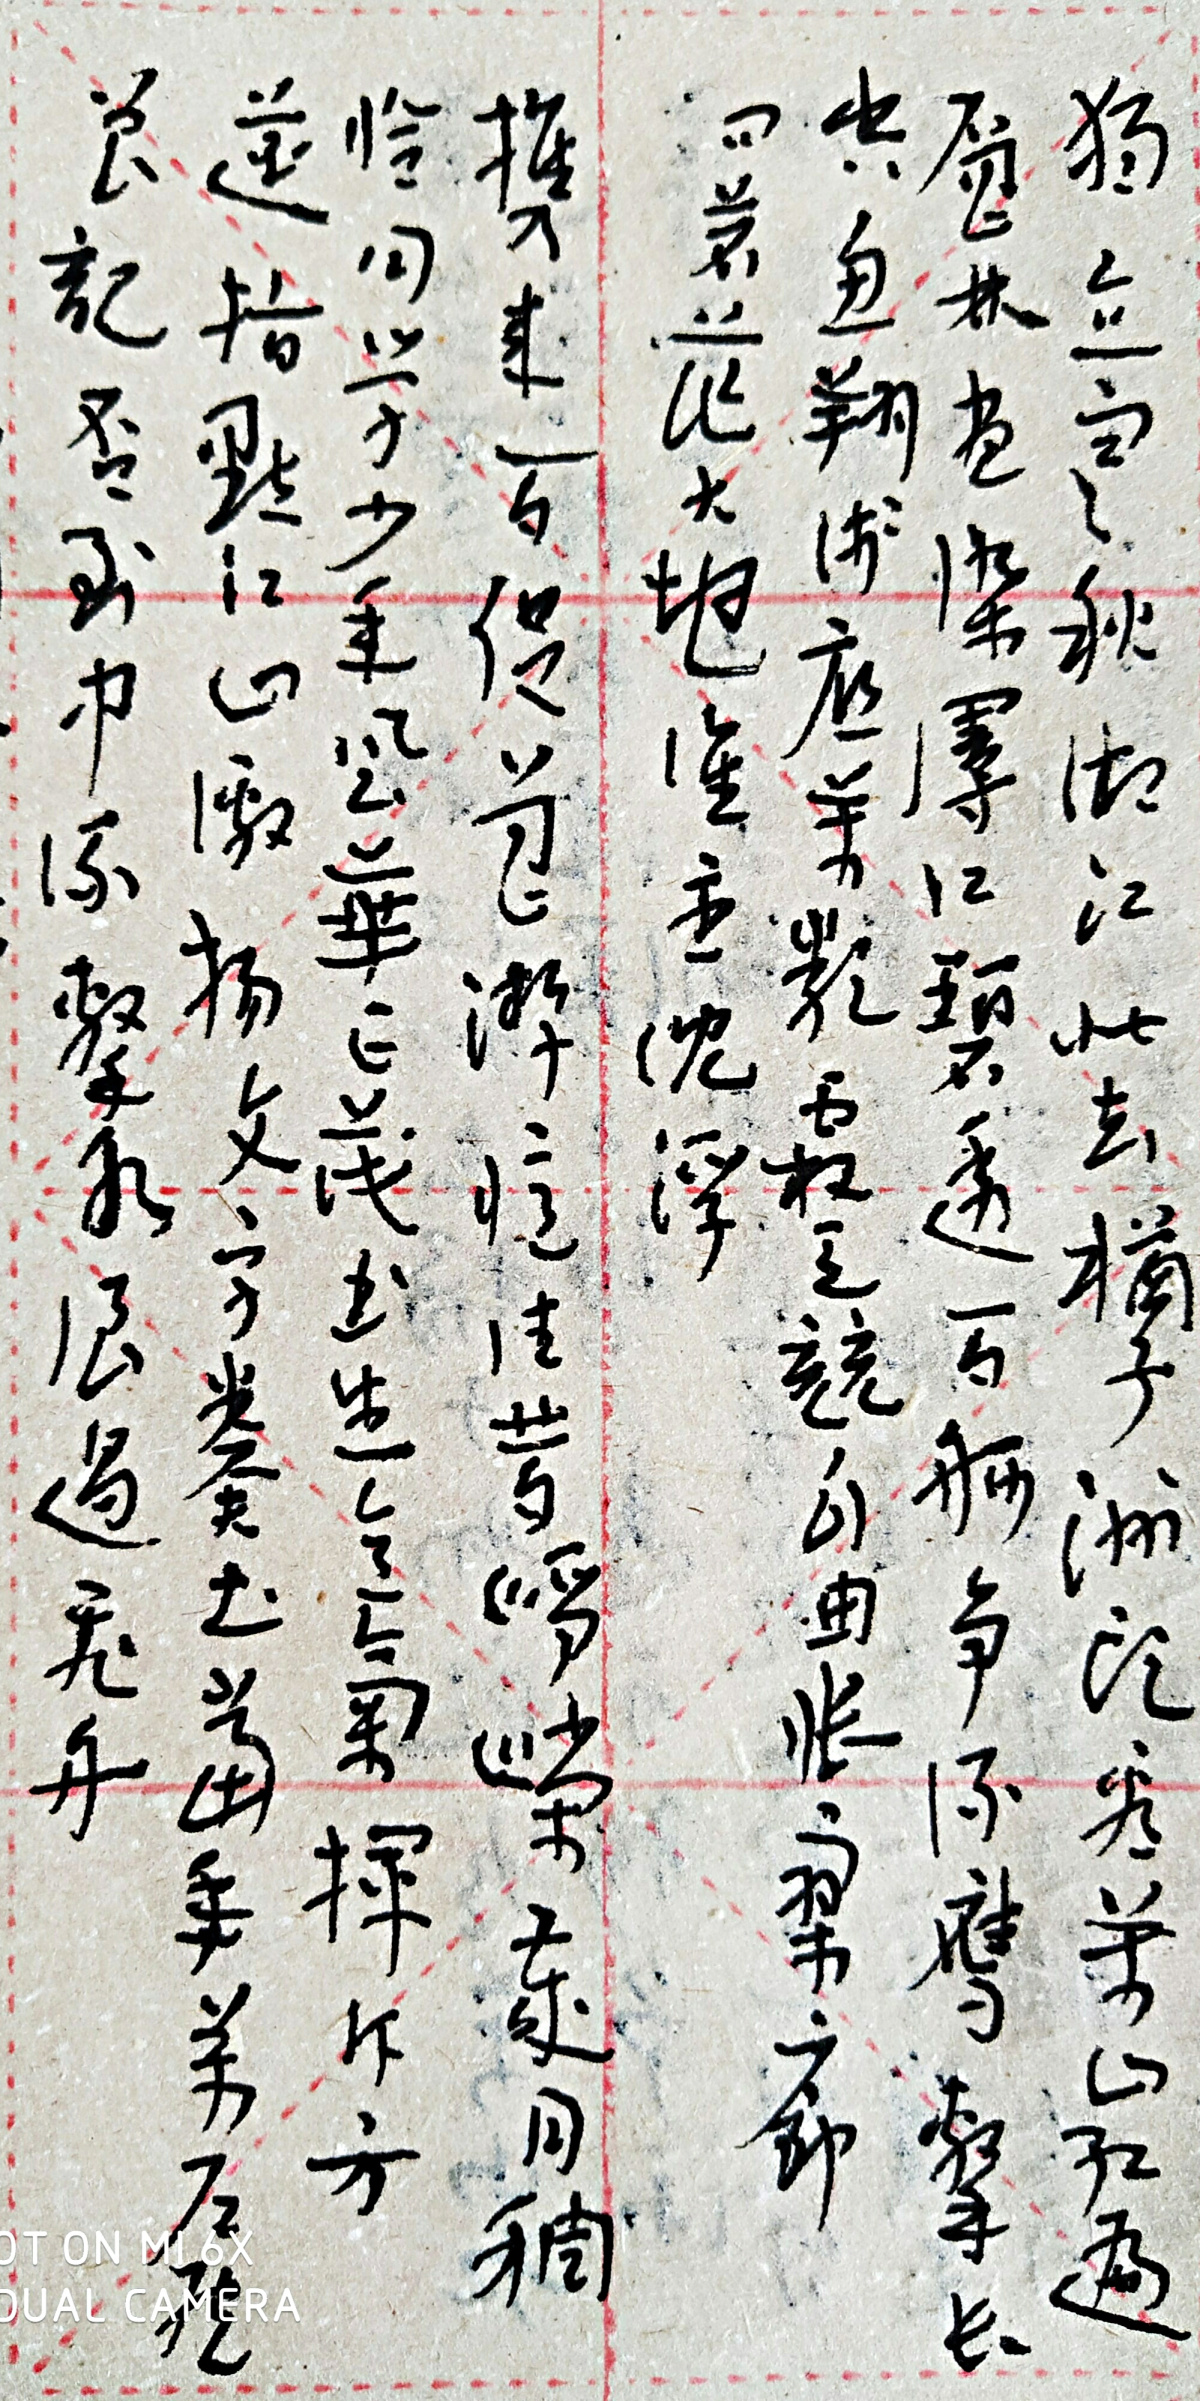 獨立寒秋湘江北去橘子洲頭看萬山紅遍
層林盡染漫江碧透百舸争流鹰擊長
空魚翔淺底萬類霜天競自由悵寥廓
問蒼茫大地誰主沈浮
攜來百侣曾遊憶往昔崢嶸歲月稠
恰同學少年風華正茂書生意氣揮斥方
遒指點江山激揚文字糞土當年萬户侯
曾記否到中流擊水浪遏飛舟
OT ON MI 6X
DUAL CAMERA